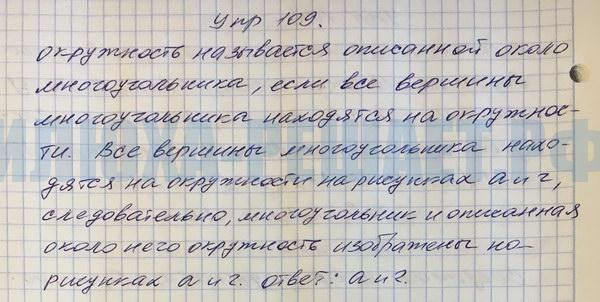 Упр 109.
окружность называется описанной около
многоугольника, если все вершины
многоугольника находятся на окружнос-
ти. Все вершины многоугольника нахо-
дятся на окружности на рисунках а и г,
следовательно, многоугольник и описанная
около него окружность изображены на
рисунках а и г. ответ: а и г.